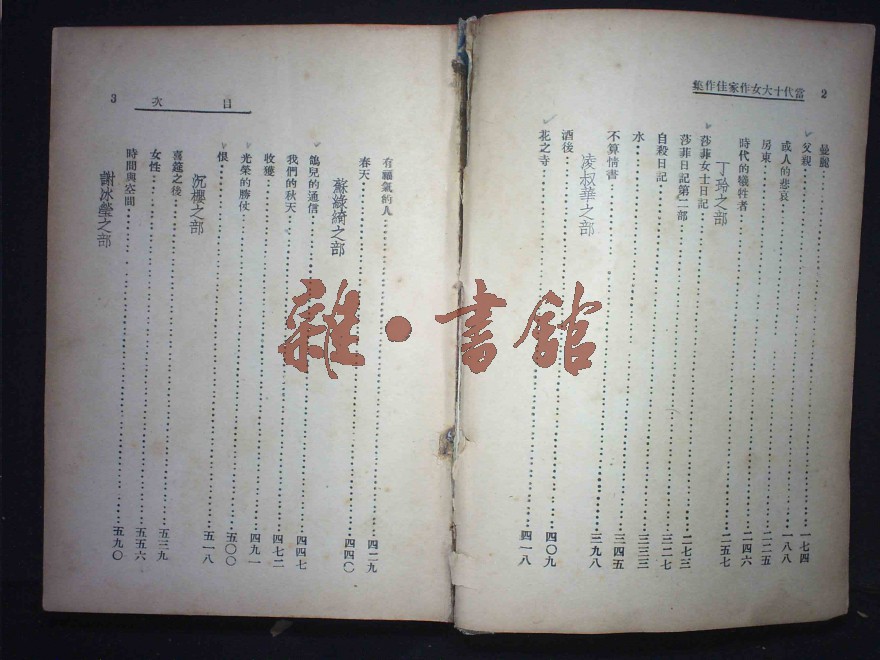 2 當代十大女作家佳作集
曼麗……一七四
父親……一八八
或人的悲哀……二二五
房東……二四六
時代的犧牲者……二五七
丁玲之部
莎菲女士日記……二七三
莎菲日記第二部……三二七
自殺日記……三三三
水……三四五
不算情書……三九八
凌叔華之部
酒後……四〇九
花之寺……四一八
目次 3
有福氣的人……四二九
春天……四四〇
蘇綠綺之部
鴿兒的通信……四四七
我們的秋天……四七二
收獲……四九一
光榮的勝仗……五〇〇
恨……五一八
沉櫻之部
喜筵之後……五三九
女性……五五六
時間與空間……五九〇
謝冰瑩之部
雜·書館